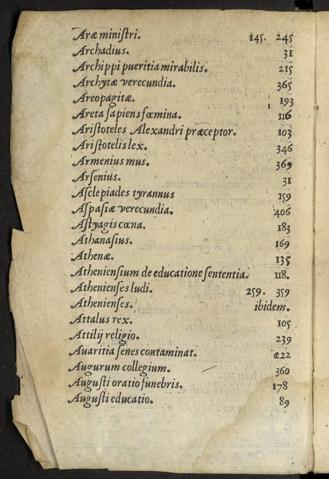 Aræ miniſtri. 145. 245
Archadius. 31
Archippi pueritia mirabilis. 215
Archytæ verecundia. 365
Areopagitæ. 193
Areta ſapiens fœmina. 116
Ariſtoteles Alexandri præceptor. 103
Ariſtotelis lex. 346
Armenius mus. 369
Arſenius. 31
Aſclepiades tyrannus 159
Aſpaſiæ verecundia. 406
Aſtyagis cœna. 183
Athanaſius. 169
Athenæ. 135
Athenienſium de educatione ſententia. 118.
Athenienſes ludi. 259. 359
Athenienſes. ibidem.
Attalus rex. 105
Attilij religio. 239
Avaritia ſenes contaminat. 222
Augurum collegium. 360
Auguſti oratio funebris. 178
Auguſti educatio. 89